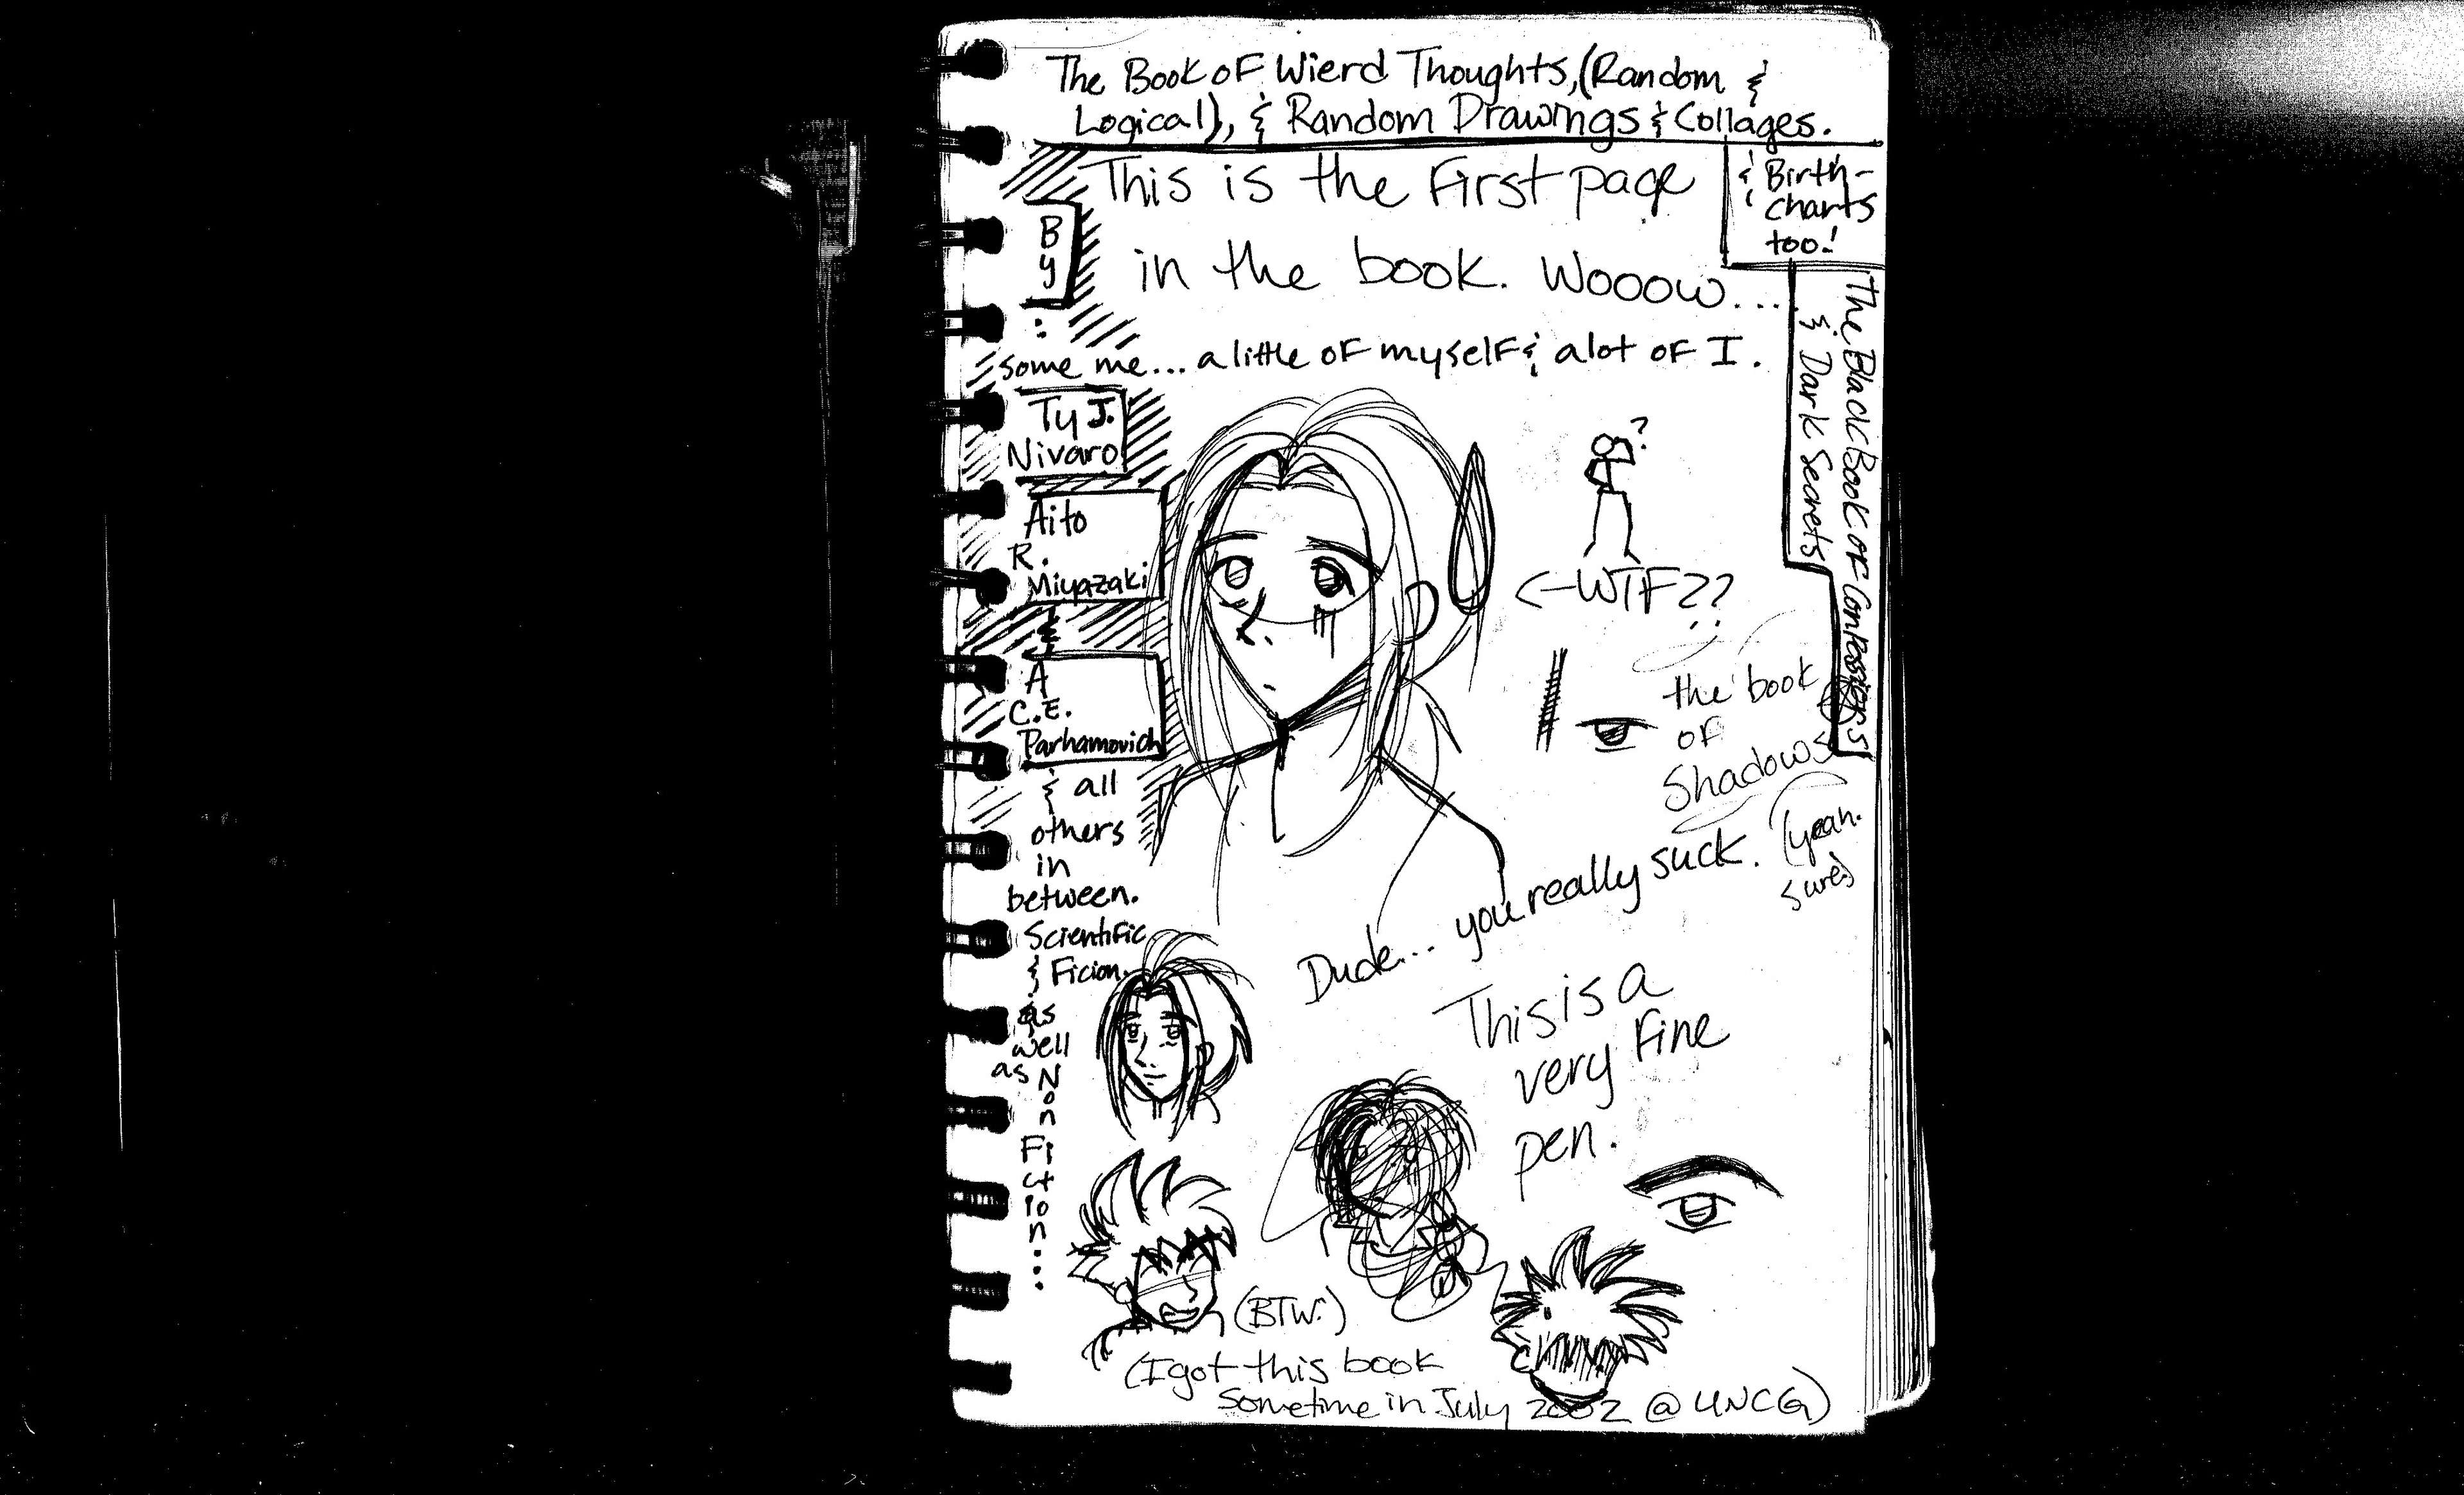 The Book of Wierd Thoughts, (Random &
Logical), & Random Drawings & Collages.
& Birth-
charts
too!
The Black Book of Confessions
& Dark Secrets
This is the first page
in the book. Wooow...
By
:
some me... a little of myself & alot of I.
Ty J.
Nivaro
Aito
R.
Miyazaki
&
A
C.E.
Parhamovich
& all
others
in
between.
Scientific
& Ficion.
as
well
as Non
Fiction...
?
<-WTF??
the book
of
Shadows
(yeah.
sure)
Dude... you really suck.
This is a
very fine
pen.
(BTW.)
(I got this book
Sometime in July 2002 @ UNCG)